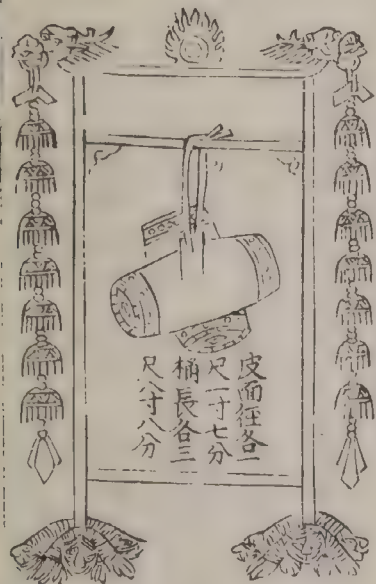 皮面徑各一
尺一寸七分
桶長各三
尺八寸八分